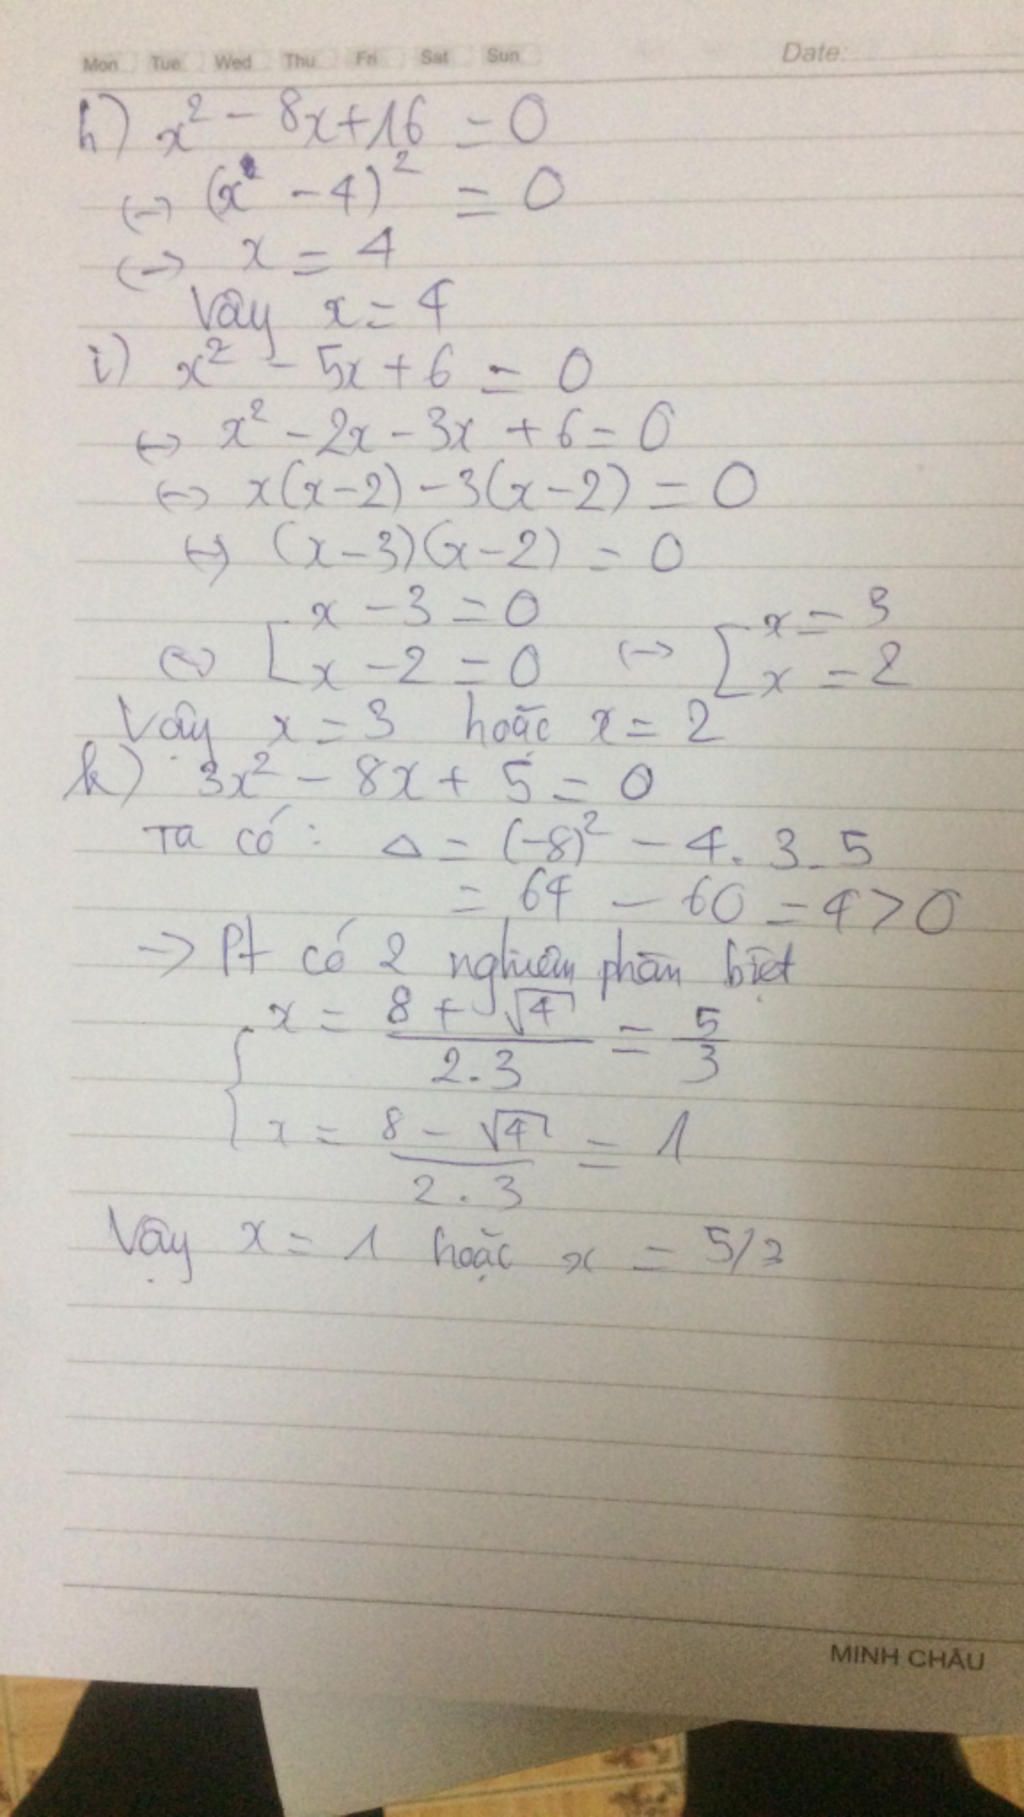 Mon Tue Wed Thu Fri Sat Sun Date:
h) x² - 8x + 16 = 0
↔ (x - 4)² = 0
↔ x = 4
Vậy x = 4
i) x² - 5x + 6 = 0
↔ x² - 2x - 3x + 6 = 0
↔ x(x-2) - 3(x-2) = 0
↔ (x-3)(x-2) = 0
↔ [ x - 3 = 0 ↔ [ x = 3
x - 2 = 0 x = 2
Vậy x = 3 hoặc x = 2
k) 3x² - 8x + 5 = 0
Ta có: Δ = (-8)² - 4. 3. 5
= 64 - 60 = 4 > 0
→ Pt có 2 nghiệm phân biệt
{ x = (8 + √4)/(2.3) = 5/3
x = (8 - √4)/(2.3) = 1
Vậy x = 1 hoặc x = 5/3
MINH CHÂU